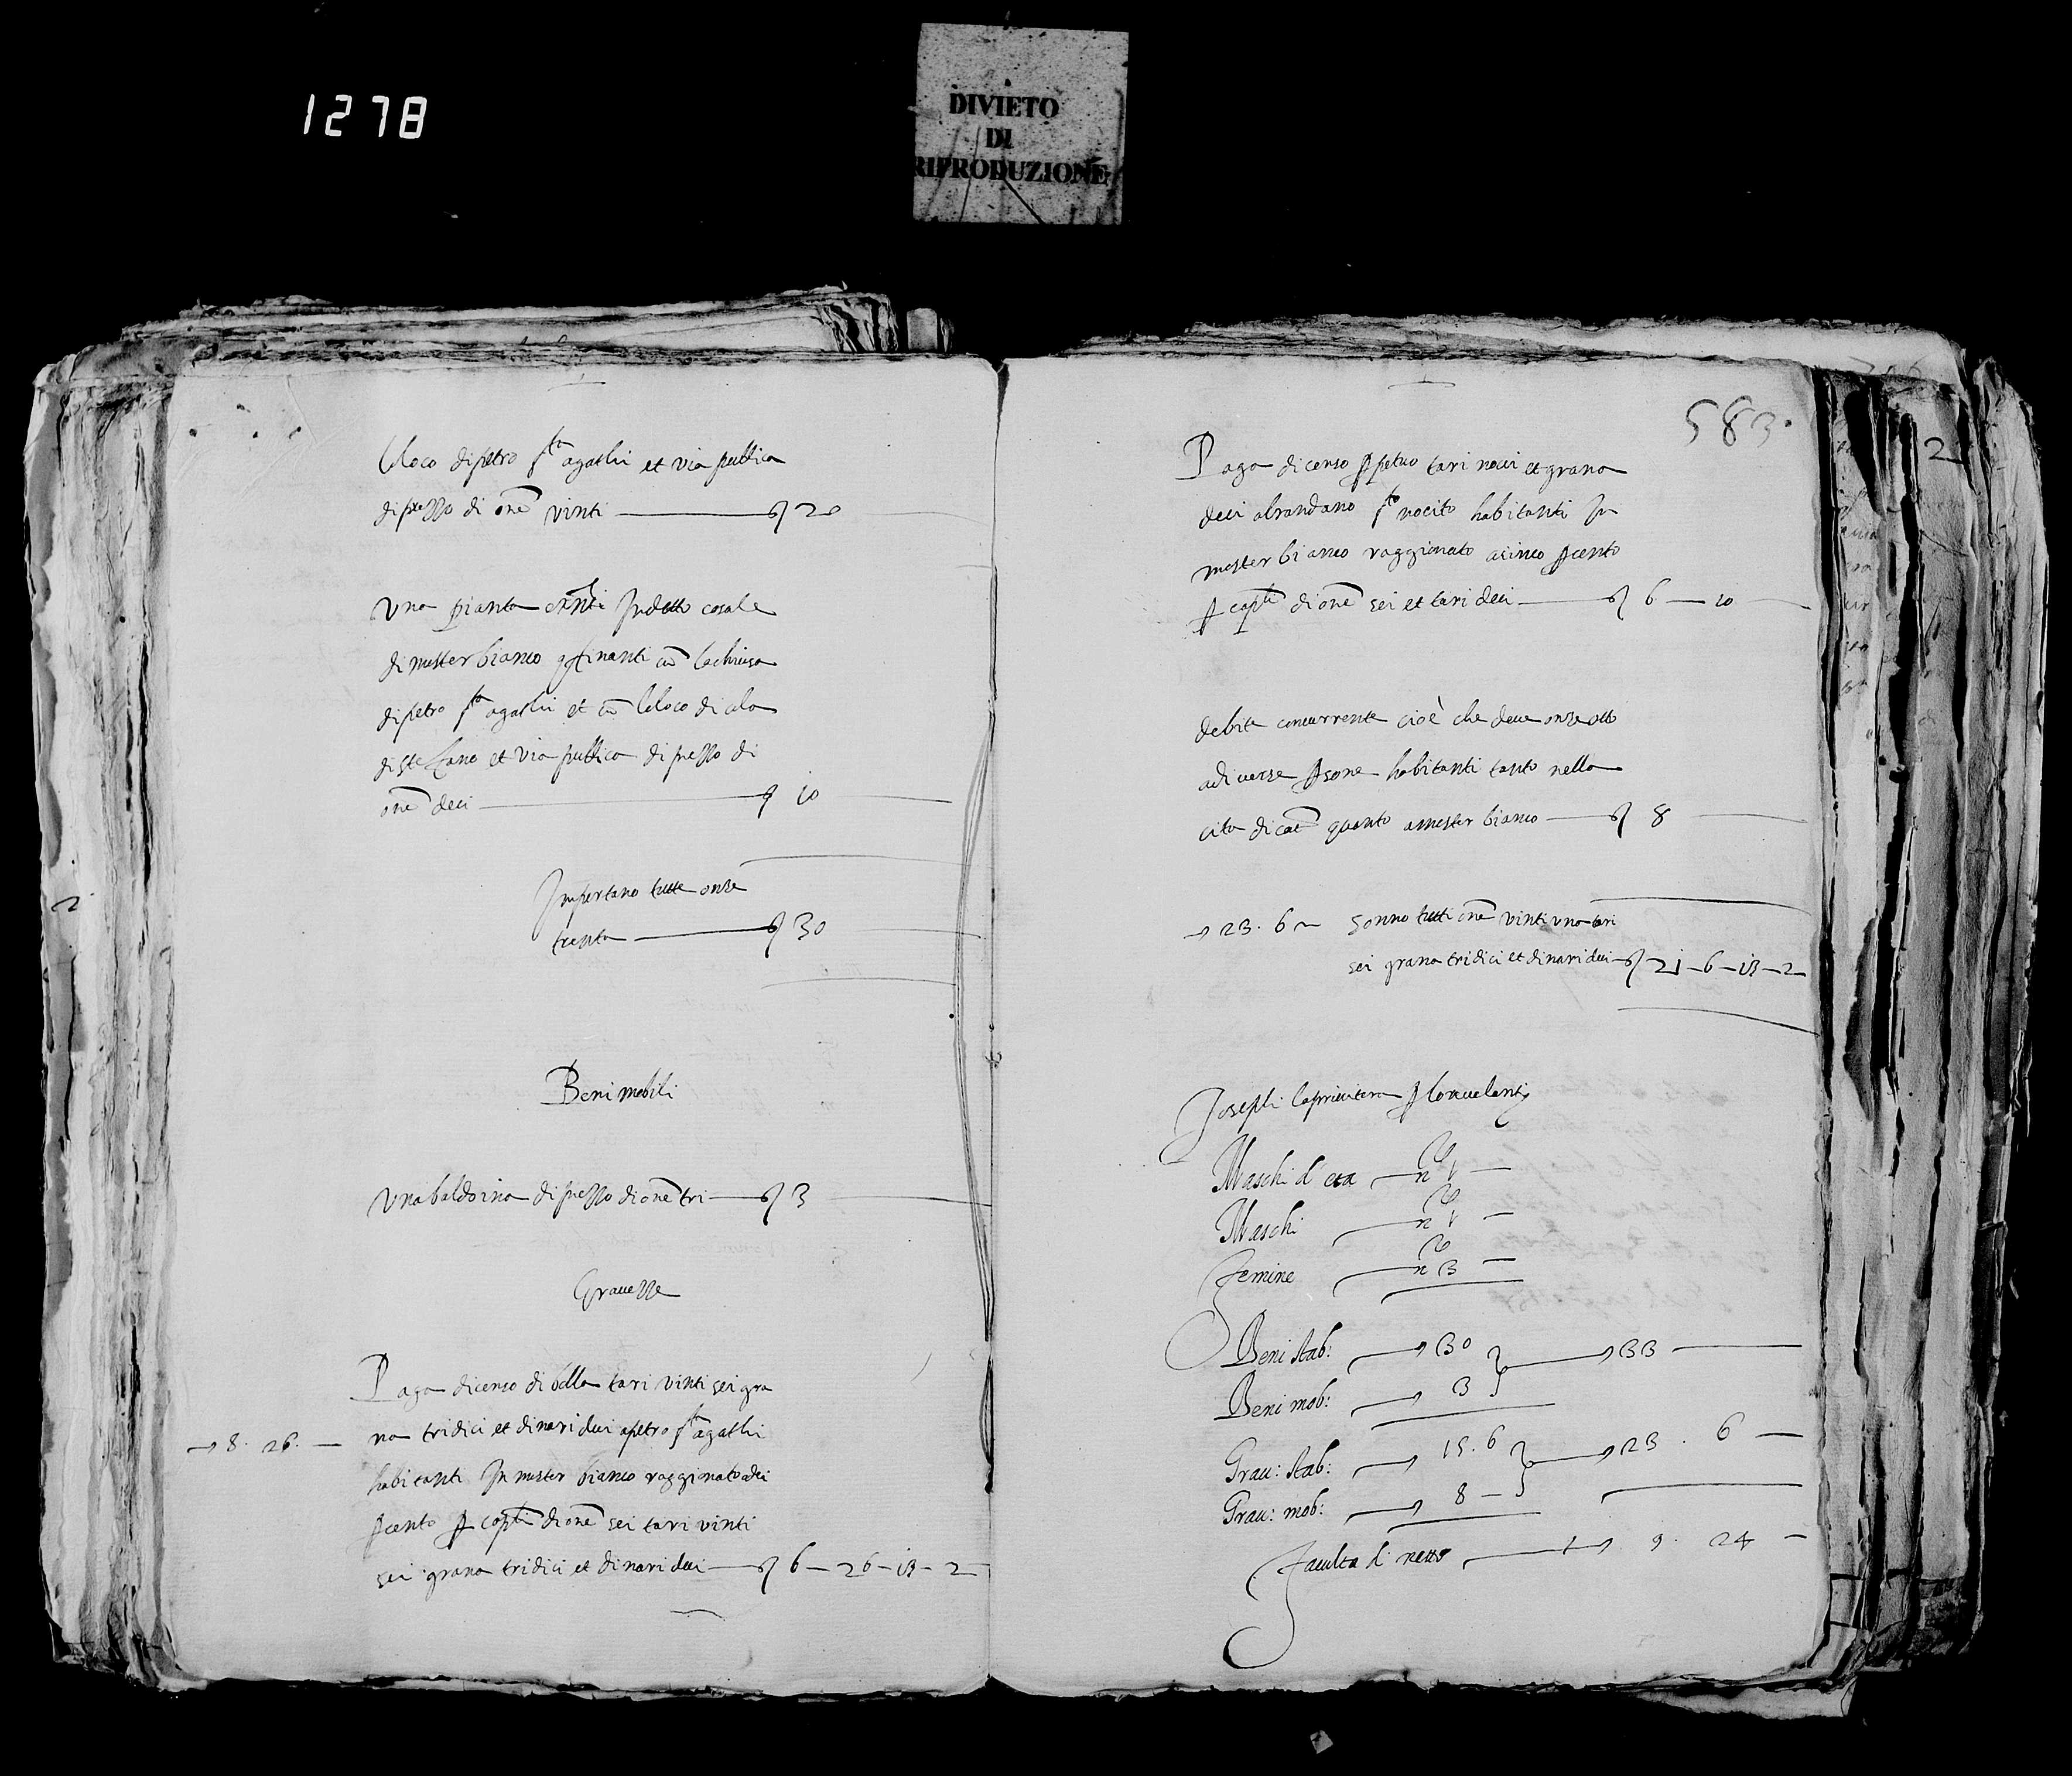 1278
DIVIETO
DI
RIPRODUZIONE
loloco di petro sta agathi et via publica
di prezzo di onze vinti 20
una pianta in detto casale
di mister bianco con la chiusa
di petro sta agathi et con loloco di cola
distefano et via publica di prezzo di
onze deci 10
Importano tutte onze
trenta 30
Beni mobili
una baldoina di prezzo di onze tri 3
Gravezze
Paga di censo di bolla tari vinti sei gra
8. 26. na tridici et dinari dui a petro sta agathi
habitanti In mister bianco raggionato a deci
per cento per capli di onze sei tari vinti
sei grana tridici et dinari dui 6 – 26 – 13 – 2
583
Paga di censo perpetuo tari novi et grana
deci a brandano sto nocito habitanti In
mister bianco raggionato a cinco per cento
per capli di onze sei et tari deci 6 – 10
debite concurrente cioè che deve onze otto
a diverse persone habitanti tanto nella
cita di cat quanto a mister bianco 8
23. 6 Sonno tutti onze vinti una tari
sei grana tridici et dinari dui 21 – 6 – 13 – 2
Joseph laprivitera
Maschi d'eta n.o 1
Maschi n.o 1
Femine n.o 3
Beni stab: 30 33
Beni mob: 3
Grav: stab: 15. 6 23. 6
Grav: mob: 8
Faculta di netto 9. 24